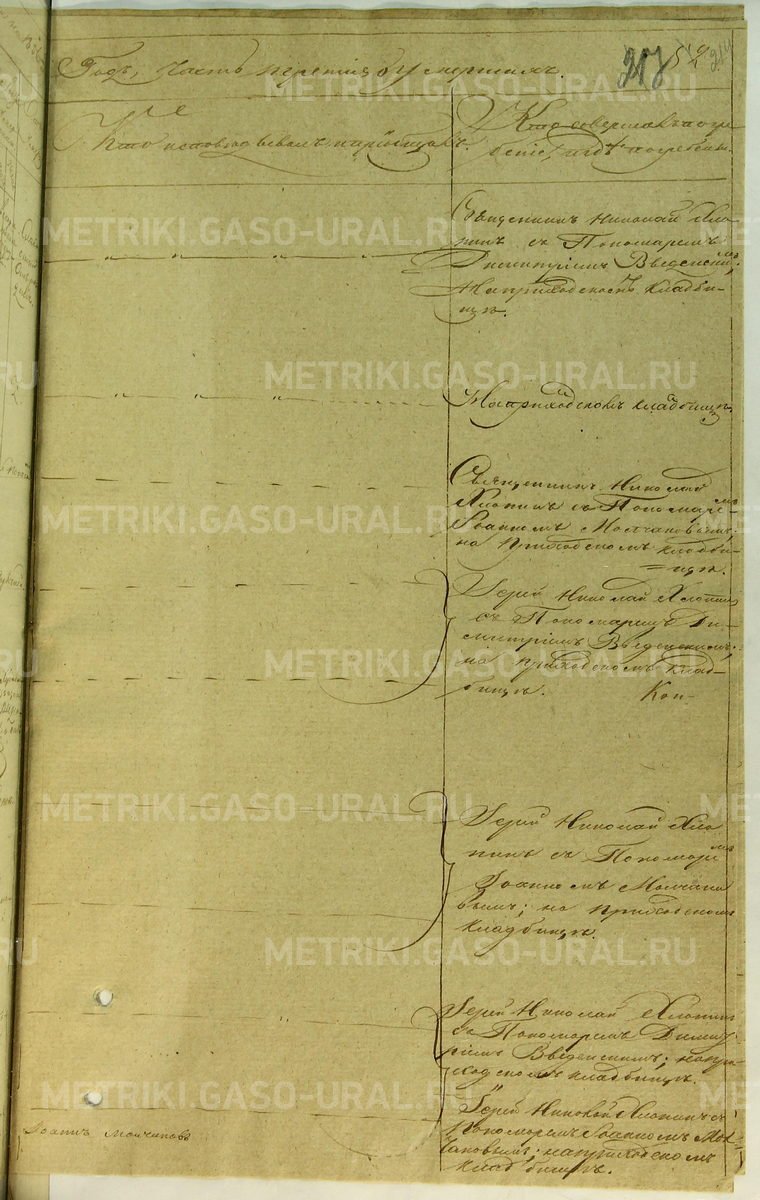 217 52 214
Годъ, Часть третія, о умершихъ.
Кто исповѣдывалъ и пріобщалъ.
Кто совершалъ погре
беніе, и гдѣ погребены.
Священникъ Николай Хло
пинъ съ Пономаремъ
Димитріемъ Введенскимъ;
На приходскомъ кладби-
щѣ.
На приходскомъ кладбищѣ
Священникъ Николай
Хлопинъ съ Пономаремъ
Іоанномъ Молчановымъ;
на приходскомъ кладби-
=щѣ.
Іерей Николай Хлопинъ
съ Пономаремъ Ди-
митріемъ Введенскимъ;
на приходскомъ клад-
бищѣ.
Іерей Николай Хло
пинъ съ Пономаремъ
Іоанномъ Молчано
вымъ; на приходскомъ
кладбищѣ.
Іерей Николай Хлопинъ
съ Пономаремъ Димит
ріемъ Введенскимъ; на при
ходскомъ кладбищѣ.
Іерей Николай Хлопинъ съ
Пономаремъ Іоанномъ Мол
чановымъ; на приходскомъ
кладбищѣ.
Іоаннъ Молчановъ
METRIKI.GASO-URAL.RU